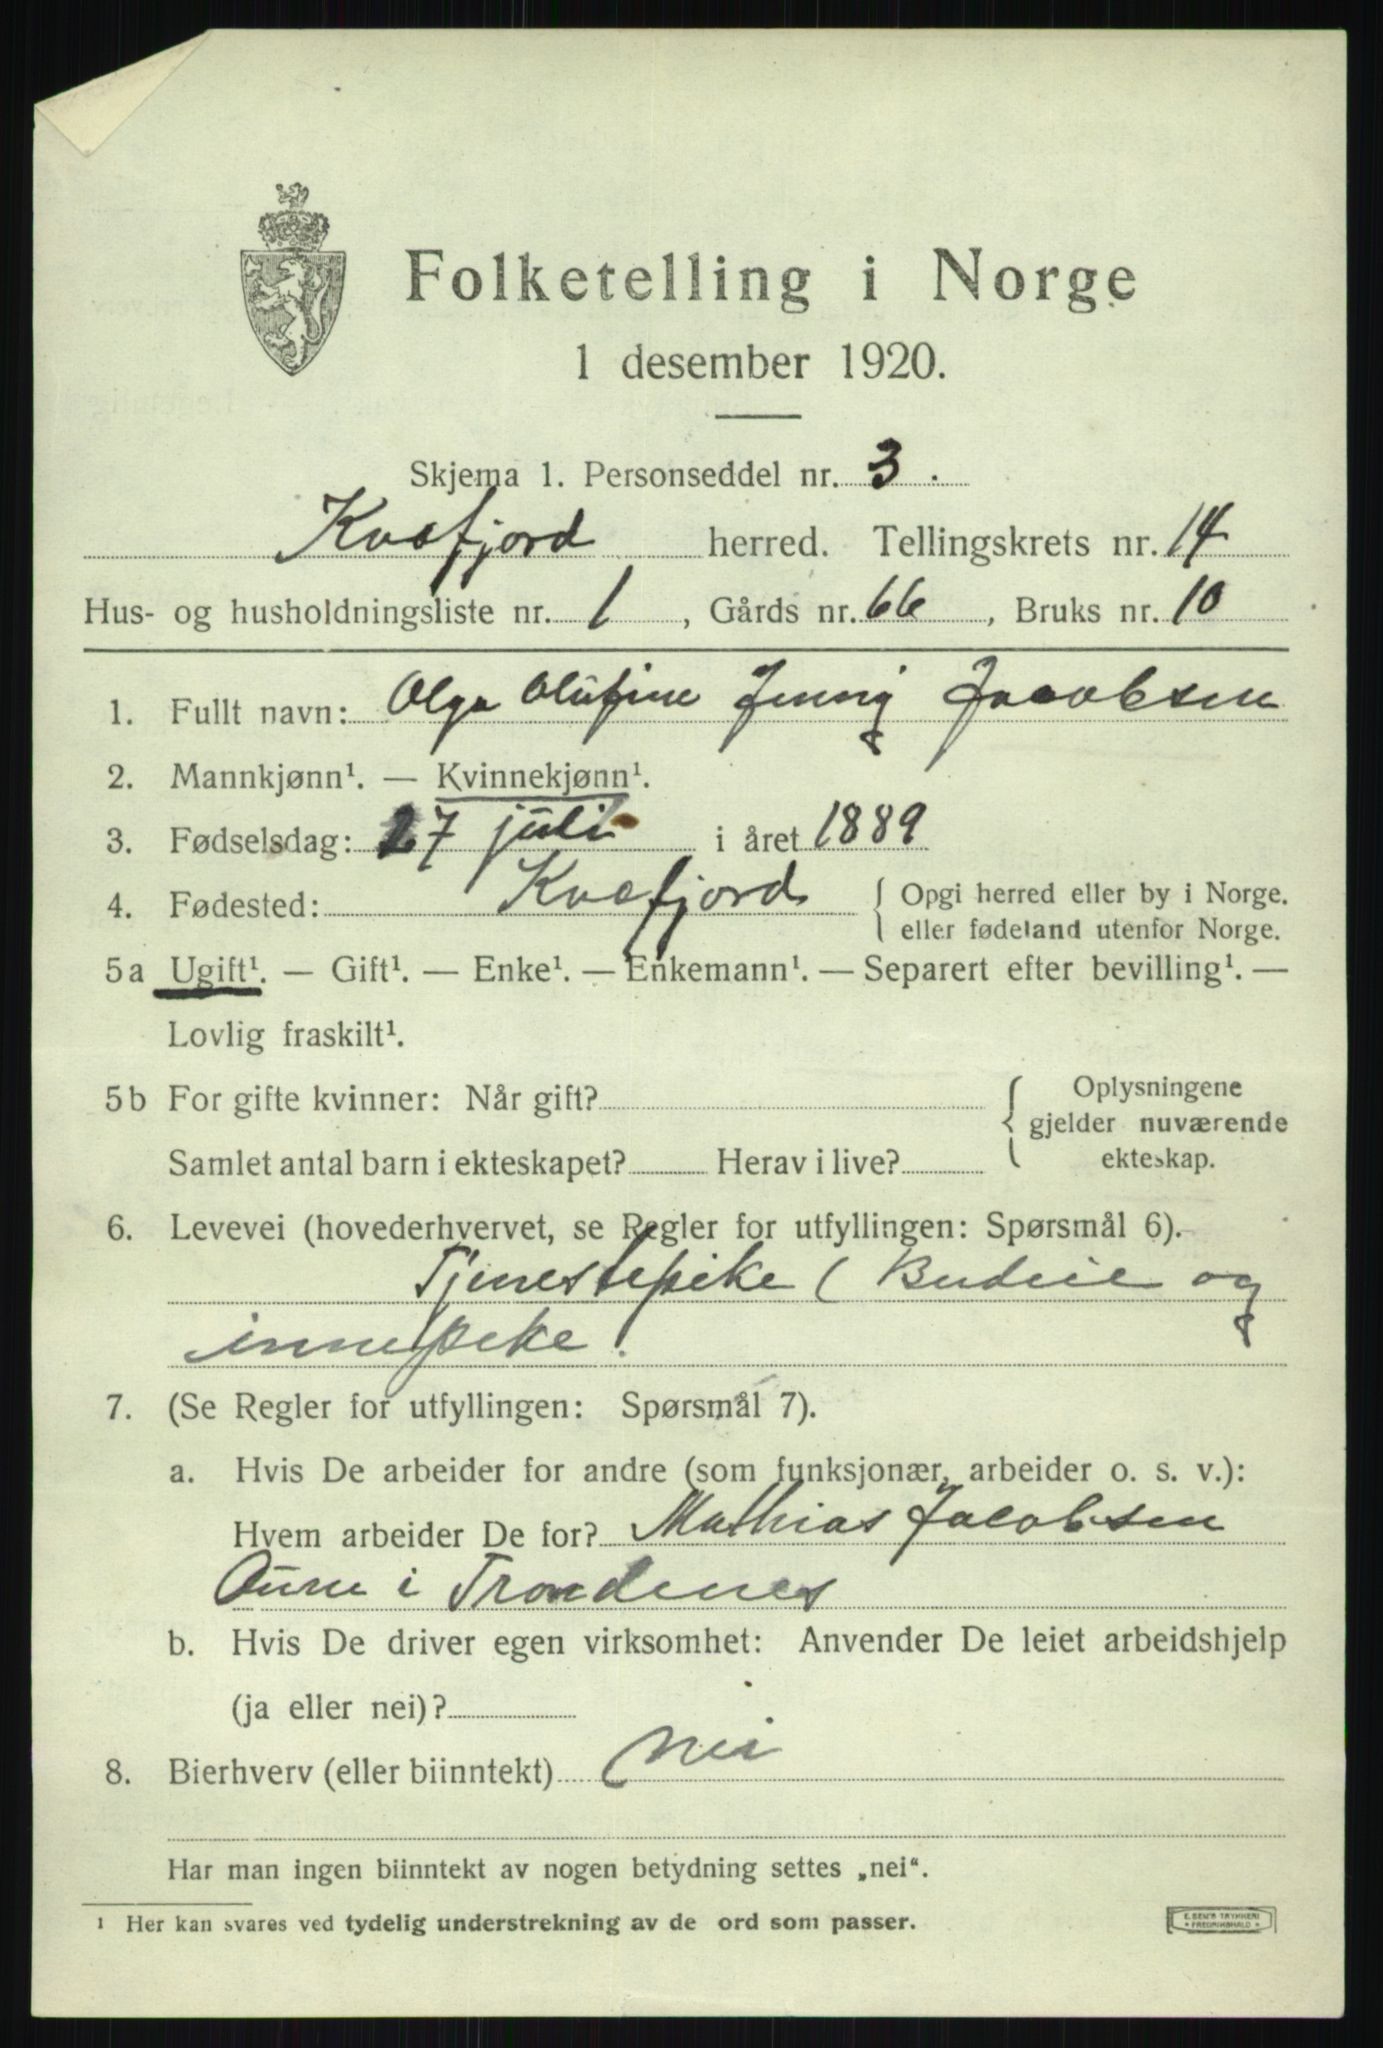 Folketelling i Norge
1 desember 1920.
Skjema 1. Personseddel nr. 3.
Kvæfjord herred. Tellingskrets nr. 14
Hus- og husholdningsliste nr. 1, Gårds nr. 66, Bruks nr. 10
1. Fullt navn: Olga Olufine Jenny Jacobsen
2. Mannkjønn¹. — Kvinnekjønn¹.
3. Fødselsdag: 27 juli i året 1889
4. Fødested: Kvæfjord { Opgi herred eller by i Norge.
eller fødeland utenfor Norge.
5a Ugift¹. — Gift¹. — Enke¹. — Enkemann¹. — Separert efter bevilling¹. —
Lovlig fraskilt¹.
5b For gifte kvinner: Når gift? { Oplysningene
gjelder nuværende
Samlet antal barn i ekteskapet? Herav i live? ekteskap.
6. Levevei (hovederhvervet, se Regler for utfyllingen: Spørsmål 6).
Tjenestepike ( Budeie og
innepike.
7. (Se Regler for utfyllingen: Spørsmål 7).
a. Hvis De arbeider for andre (som funksjonær, arbeider o. s. v.):
Hvem arbeider De for? Mathias Jacobsen
Aune i Trondenes
b. Hvis De driver egen virksomhet: Anvender De leiet arbeidshjelp
(ja eller nei)?
8. Bierhverv (eller biinntekt) nei
Har man ingen biinntekt av nogen betydning settes „nei“.
¹ Her kan svares ved tydelig understrekning av de ord som passer.
E. SEM'S TRYKKERI
FREDRIKSHALD